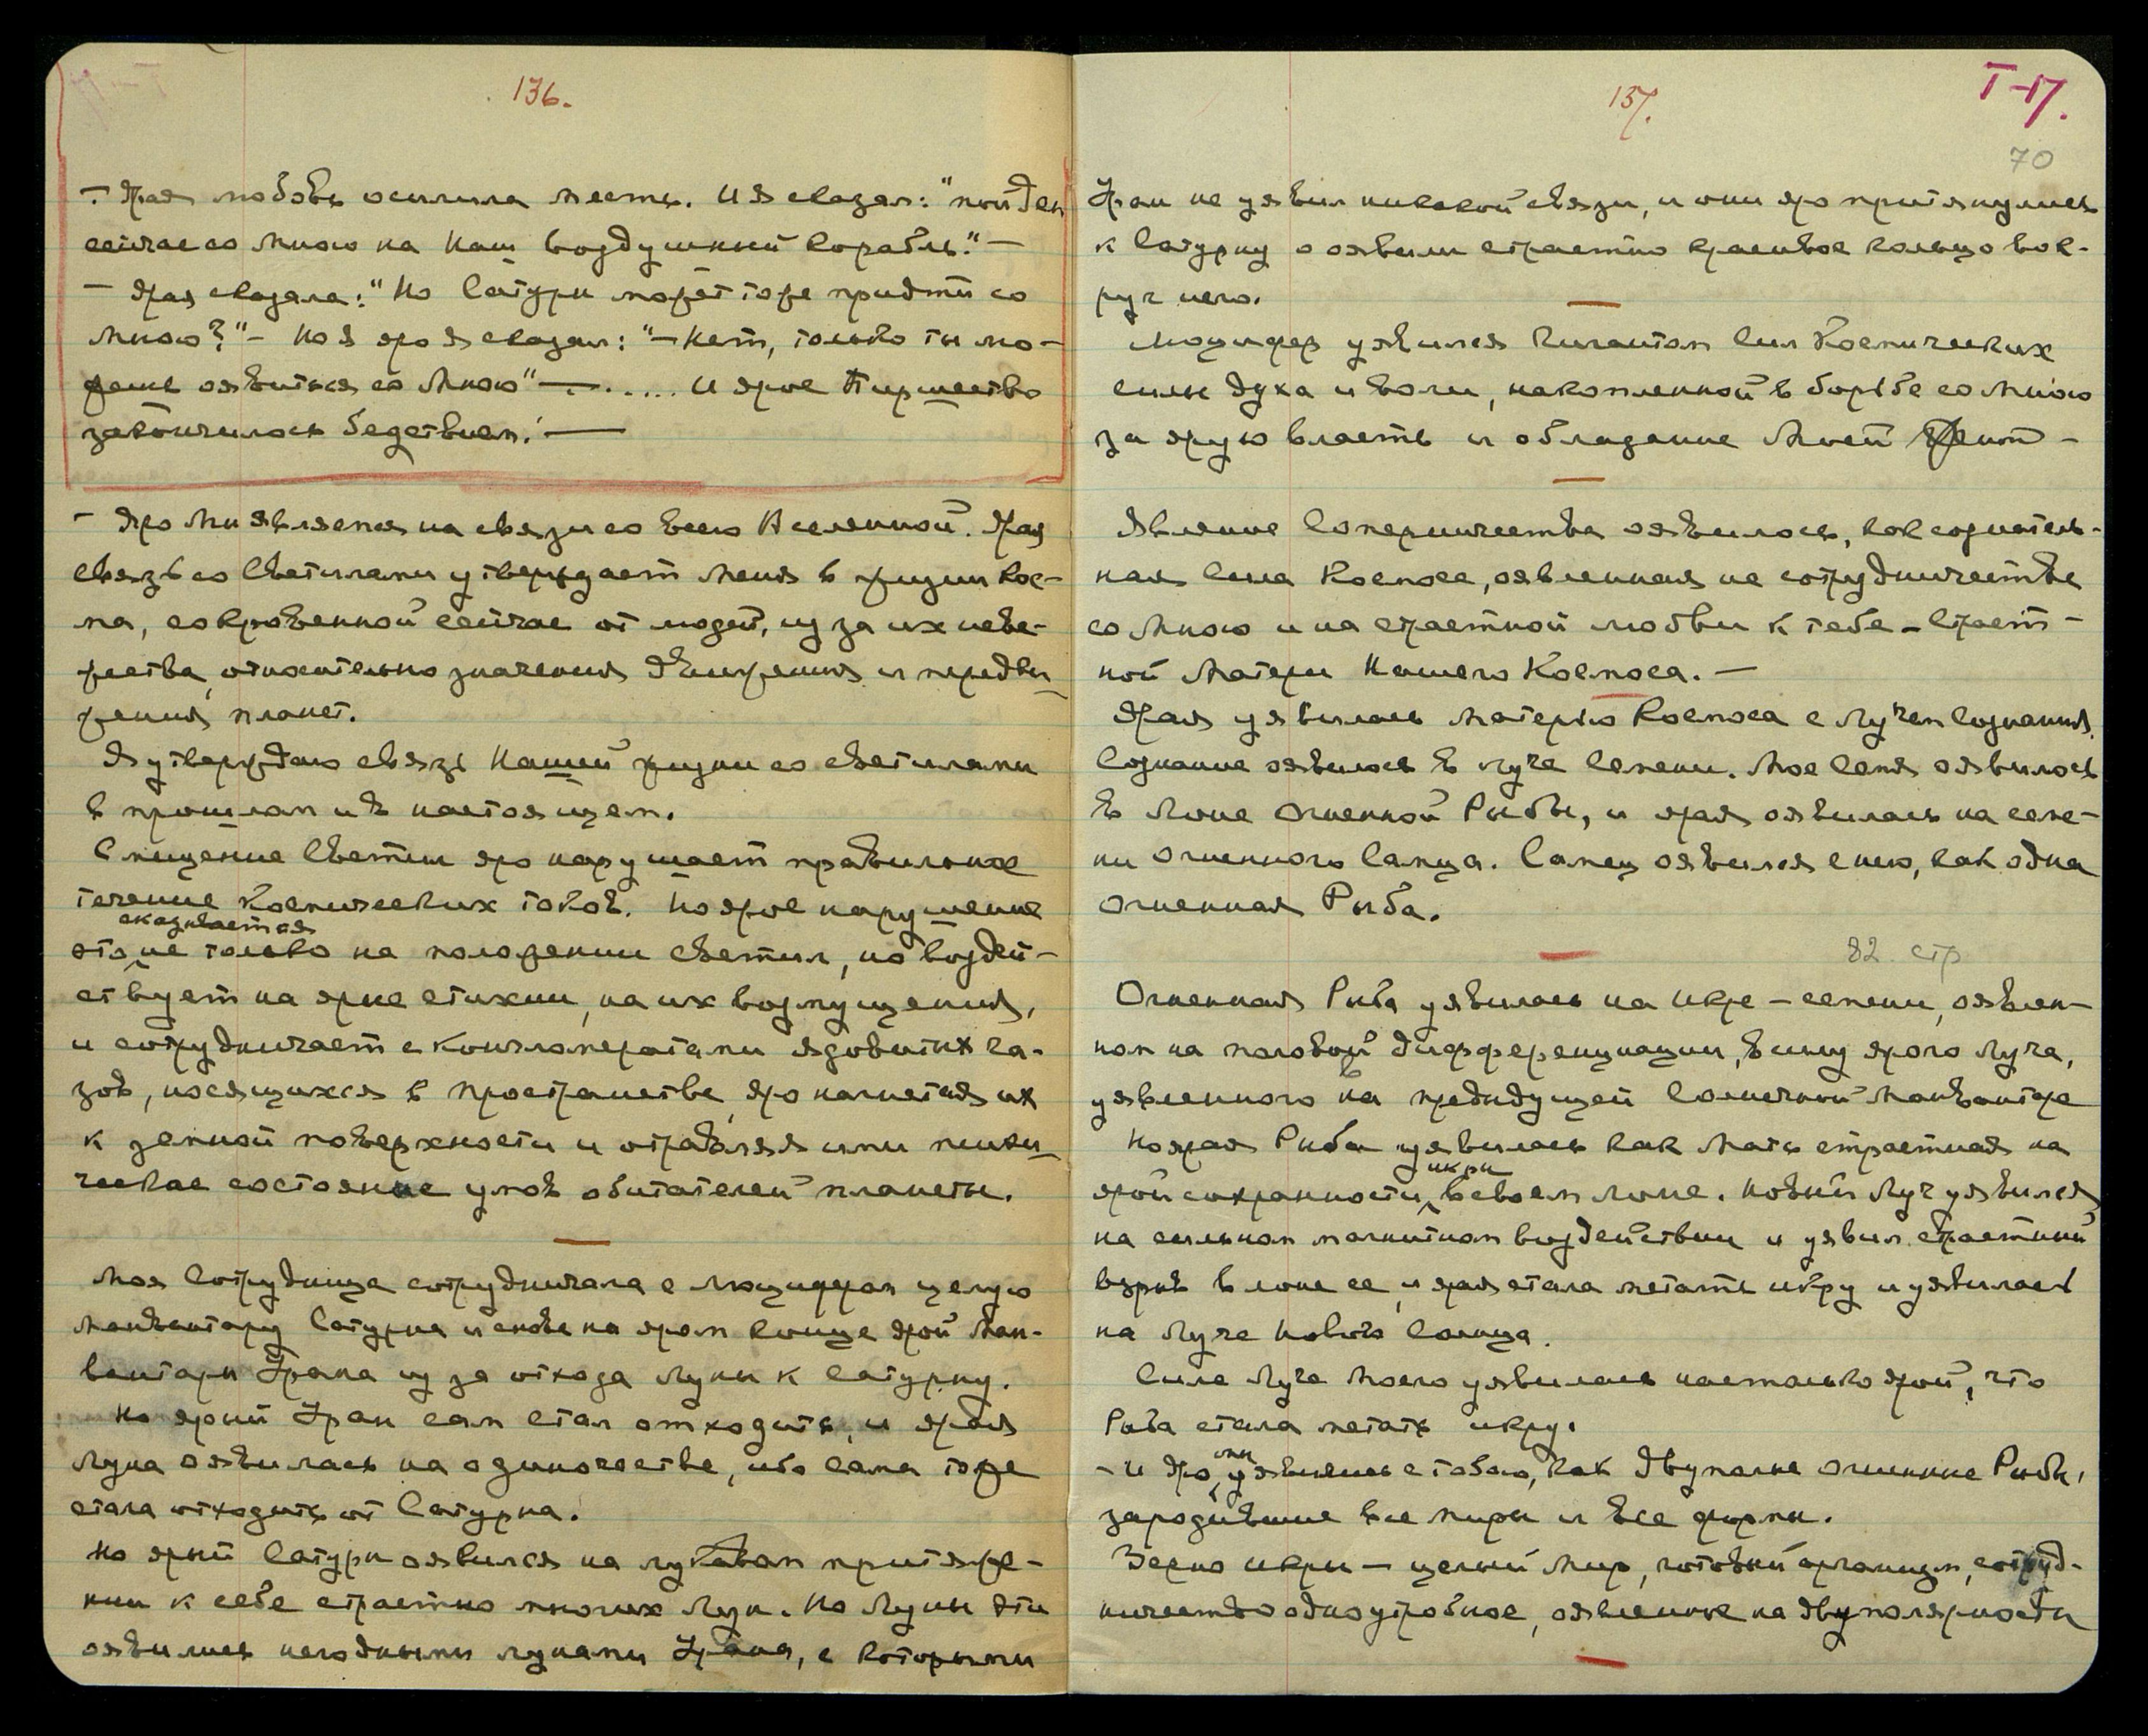 136.
– Ярая любовь осилила месть. И я сказал: "пойдем
сейчас со Мною на Наш воздушный корабль." –
– Ярая сказала: "Но Сатурн может тоже придти со
Мною?" – Но Я яро Я сказал: "– Нет, только ты мо-
жешь оявиться со Мною" – ..... И ярое Пиршество
закончилось бедствием! –
– Яро Мы являемся на связи со всею Вселенной. Ярая
связь со Светилами утверждает Меня в жизни Кос-
ма, сокровенной сейчас от людей, из за их неве-
жества, относительно значения движения и передви-
жения планет.
Я утверждаю связь Нашей жизни со светилами
в прошлом и в настоящем.
Смещение Светил яро нарушает правильное
течение Космических токов. Но ярое нарушение
сказывается
это не только на положении светил, но воздей-
ствует на ярые стихии, на их возмущения,
и сотрудничает с конгломератами ядовитых га-
зов, носящихся в пространстве, яро нагнетая их
к земной поверхности и отравляя ими психи-
ческое состояние умов обитателей планеты.
Моя Сотрудница сотрудничала с Люцифером целую
Манвантару Сатурна и снова на яром конце ярой Ман-
вантары Урана из за отхода Луны к Сатурну.
Но ярый Уран сам стал отходить, и ярая
Луна оявилась на одиночестве, ибо сама тоже
стала отходить от Сатурна.
Но ярый Сатурн оявился на лукавом притяже-
нии к себе страстно многих Лун. Но Луны эти
оявились негодными лунами Урана, с которыми
137.
Т-17.
70
Уран не уявил никакой связи, и они яро притянулись
к Сатурну и оявили страстно красивое кольцо вок-
руг него.
Люцифер уявился Гигантом Сил Космических
силы духа и воли, накопленной в борьбе со Мною
за ярую власть и обладание Моей –
Явление Соперничества оявилось, как сознатель-
ная Сила Космоса, оявленная на сотрудничестве
со Мною и на страстной любви к тебе – Страст-
ной Матери Нашего Космоса. –
Ярая уявилась Матерью Космоса с Лучем Сознания.
Сознание оявилось в луче Семени. Мое Семя оявилось
в Лоне Огненной Рыбы, и ярая оявилась на семе-
ни Огненного Самца. Самец оявился с нею, как одна
Огненная Рыба.
82 стр
Огненная Рыба уявилась на Икре – семени, оявлен-
ном на половой дифференциации, в силу ярого Луча,
уявленного на предыдущей Солнечной Манвантаре
Но ярая Рыба уявилась как Мать страстная на
икры
ярой сохранности в своем лоне. Новый Луч уявился
на сильном магнитном воздействии и уявил страстный
взрыв в лоне ее, и ярая стала метать икру и уявилась
на Луче Нового Солнца.
Сила Луча Моего уявилась настолько ярой, что
Рыба стала метать икру.
мы
– И яро уявились с тобою, как двуполые Огненные Рыбы,
зародившие все миры и все формы.
Зерно икры – целый Мир, готовый организм, сотруд-
ничество одноутробное, оявленное на двуполярности